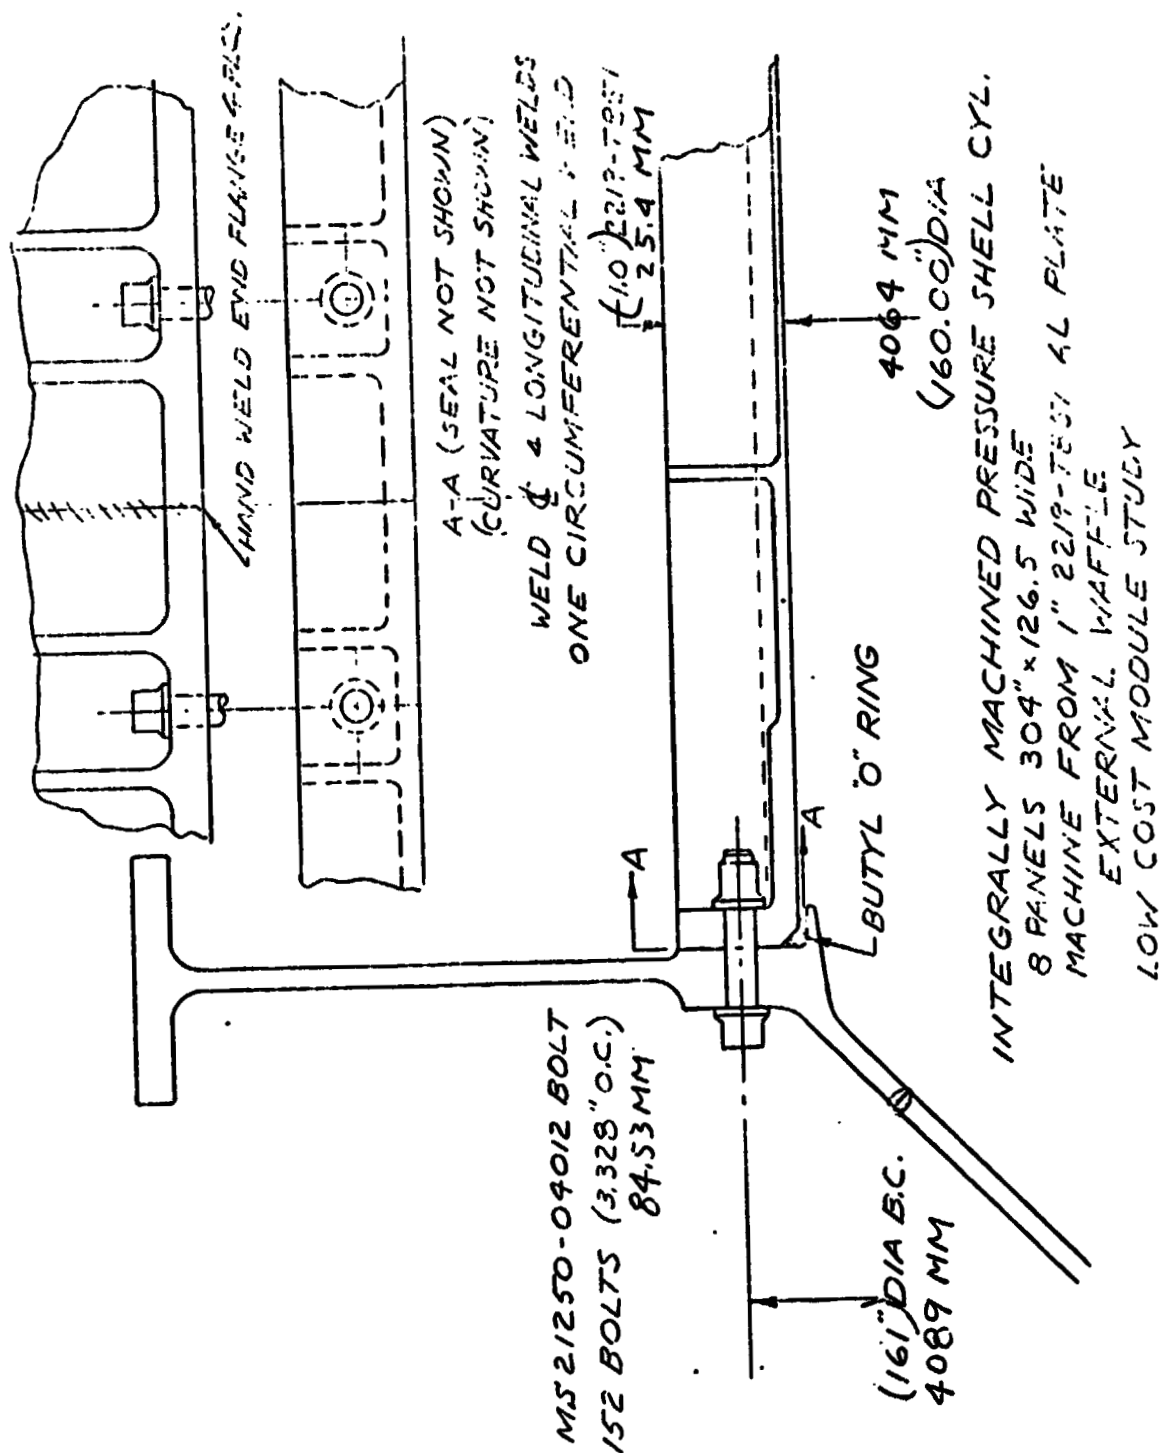 HAND WELD END FLANGE 4 PLC.
A-A (SEAL NOT SHOWN)
(CURVATURE NOT SHOWN)
WELD ℄ 4 LONGITUDINAL WELDS
ONE CIRCUMFERENTIAL WELD
(1.0") 2219-T851
25.4 MM
4064 MM
(160.00") DIA
A
A
BUTYL "O" RING
MS21250-04012 BOLT
152 BOLTS (3.328" O.C.)
84.53 MM
(161") DIA B.C.
4089 MM
INTEGRALLY MACHINED PRESSURE SHELL CYL.
8 PANELS 304" x 126.5 WIDE
MACHINE FROM 1" 2219-T851 AL PLATE
EXTERNAL WAFFLE
LOW COST MODULE STUDY